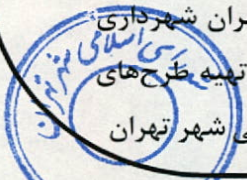 ران شهرداری
تهیه طرح‌های
ی شهر تهران
اسلامی شهر تهران